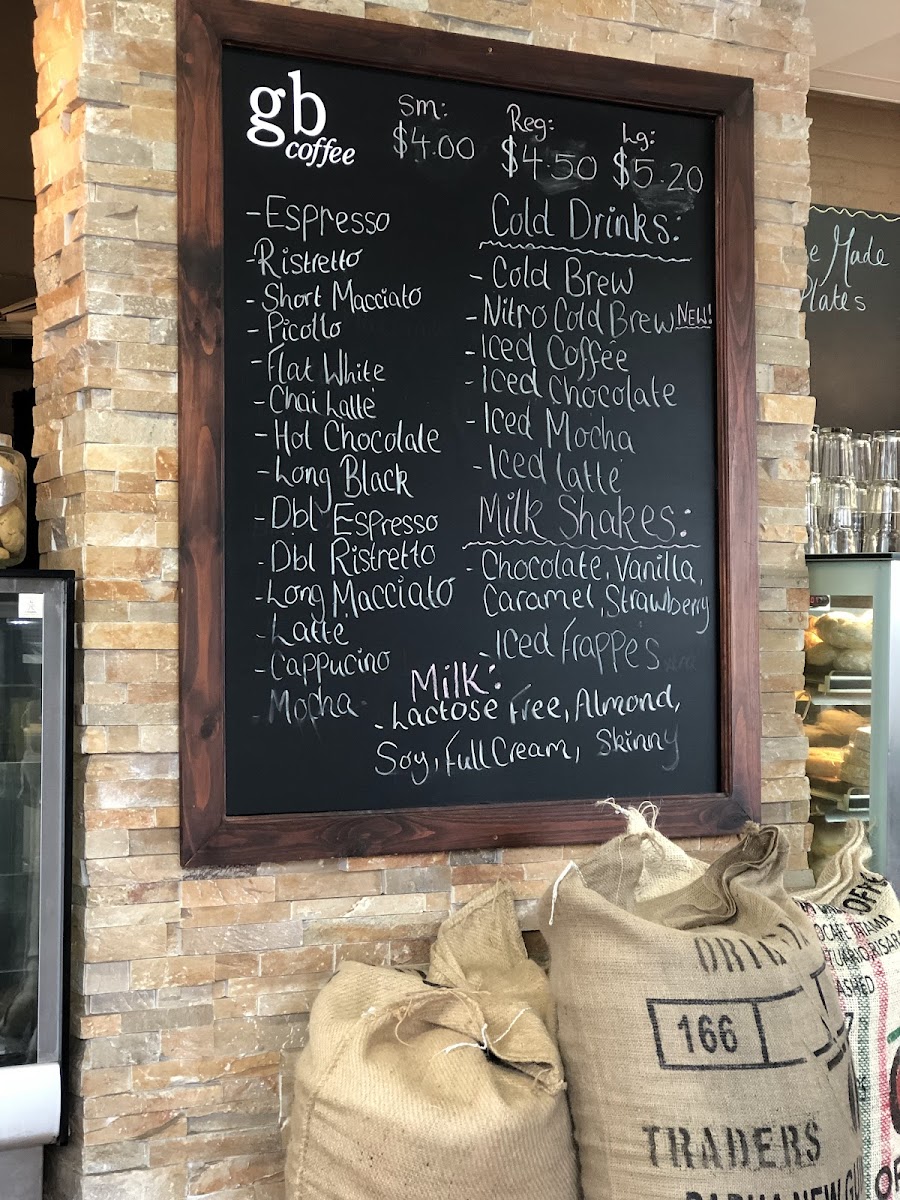 gb
coffee
Sm:
$4.00
Reg:
$4.50
Lg:
$5.20
-Espresso
-Ristretto
-Short Macciato
-Picollo
-Flat White
-Chai Latte
-Hot Chocolate
-Long Black
-Dbl Espresso
-Dbl Ristretto
-Long Macciato
-Latte
-Cappucino
-Mocha
Cold Drinks:
-Cold Brew
-Nitro Cold Brew NEW!
-Iced Coffee
-Iced Chocolate
-Iced Mocha
-Iced latte
Milk Shakes:
-Chocolate, Vanilla,
Caramel, Strawberry
-Iced Frappes
Milk:
-Lactose Free, Almond,
Soy, Full Cream, Skinny
Made
Plates
166
TRADERS